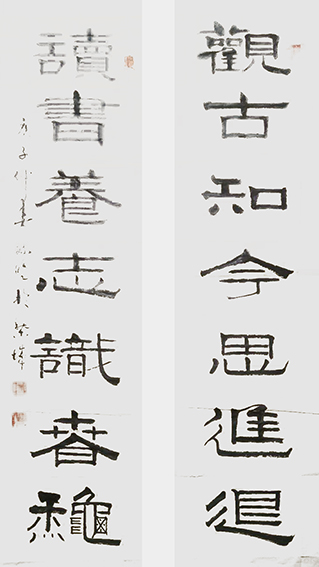 觀古知今思進退
讀書養志識春龝
庚子仲夏